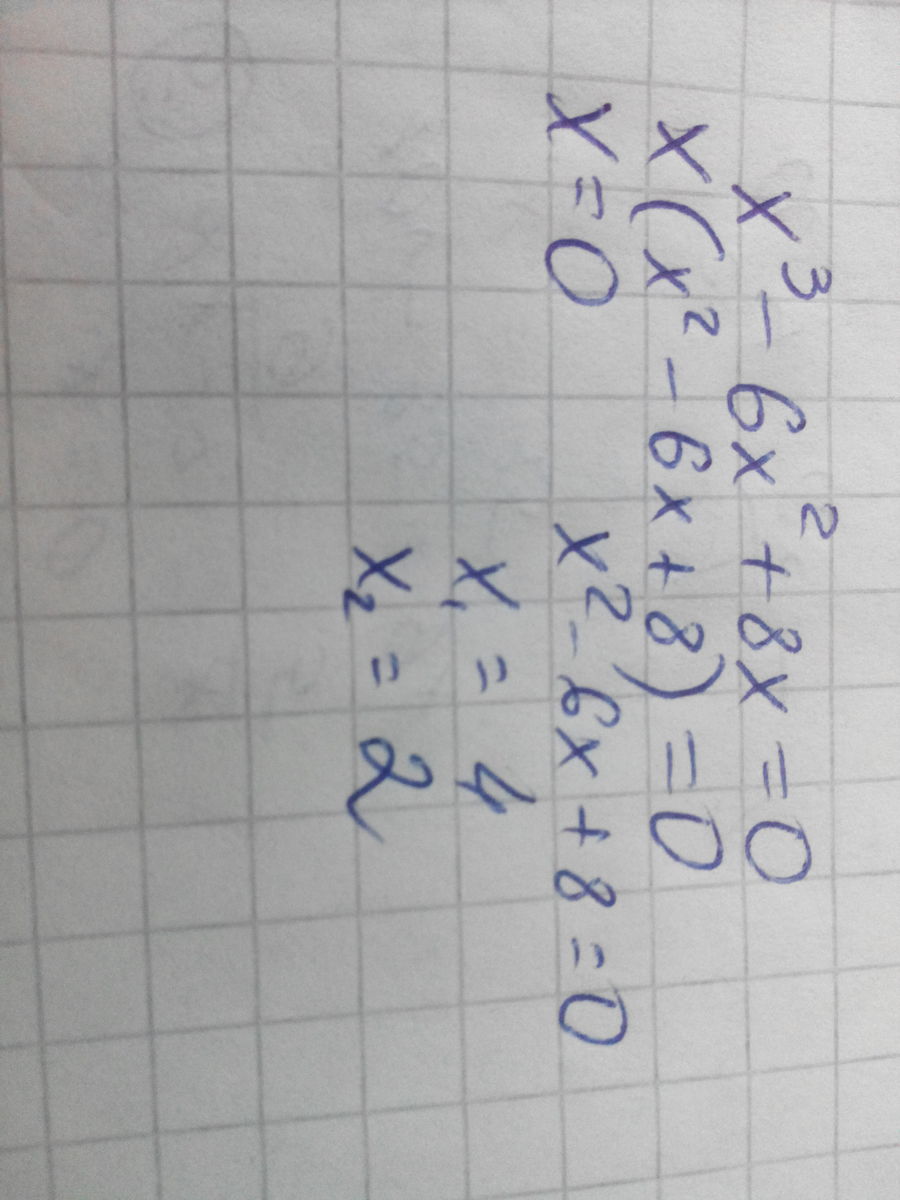 x³ - 6x² + 8x = 0
x(x² - 6x + 8) = 0
x = 0 x² - 6x + 8 = 0
x₁ = 4
x₂ = 2